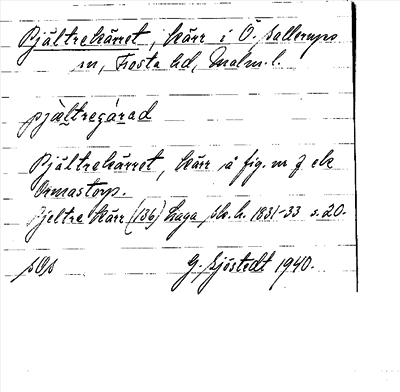 Pjältrekärret, kärr i Ö. Sallerups
sn, Frosta hd, Malm. l.
pjæltregárad
Pjältrekärret, kärr å fig. nr
Ormastorp.
Pjeltre kärr (136) Laga sk. h. 1831-33 s. 20.
G. Sjöstedt 1940.